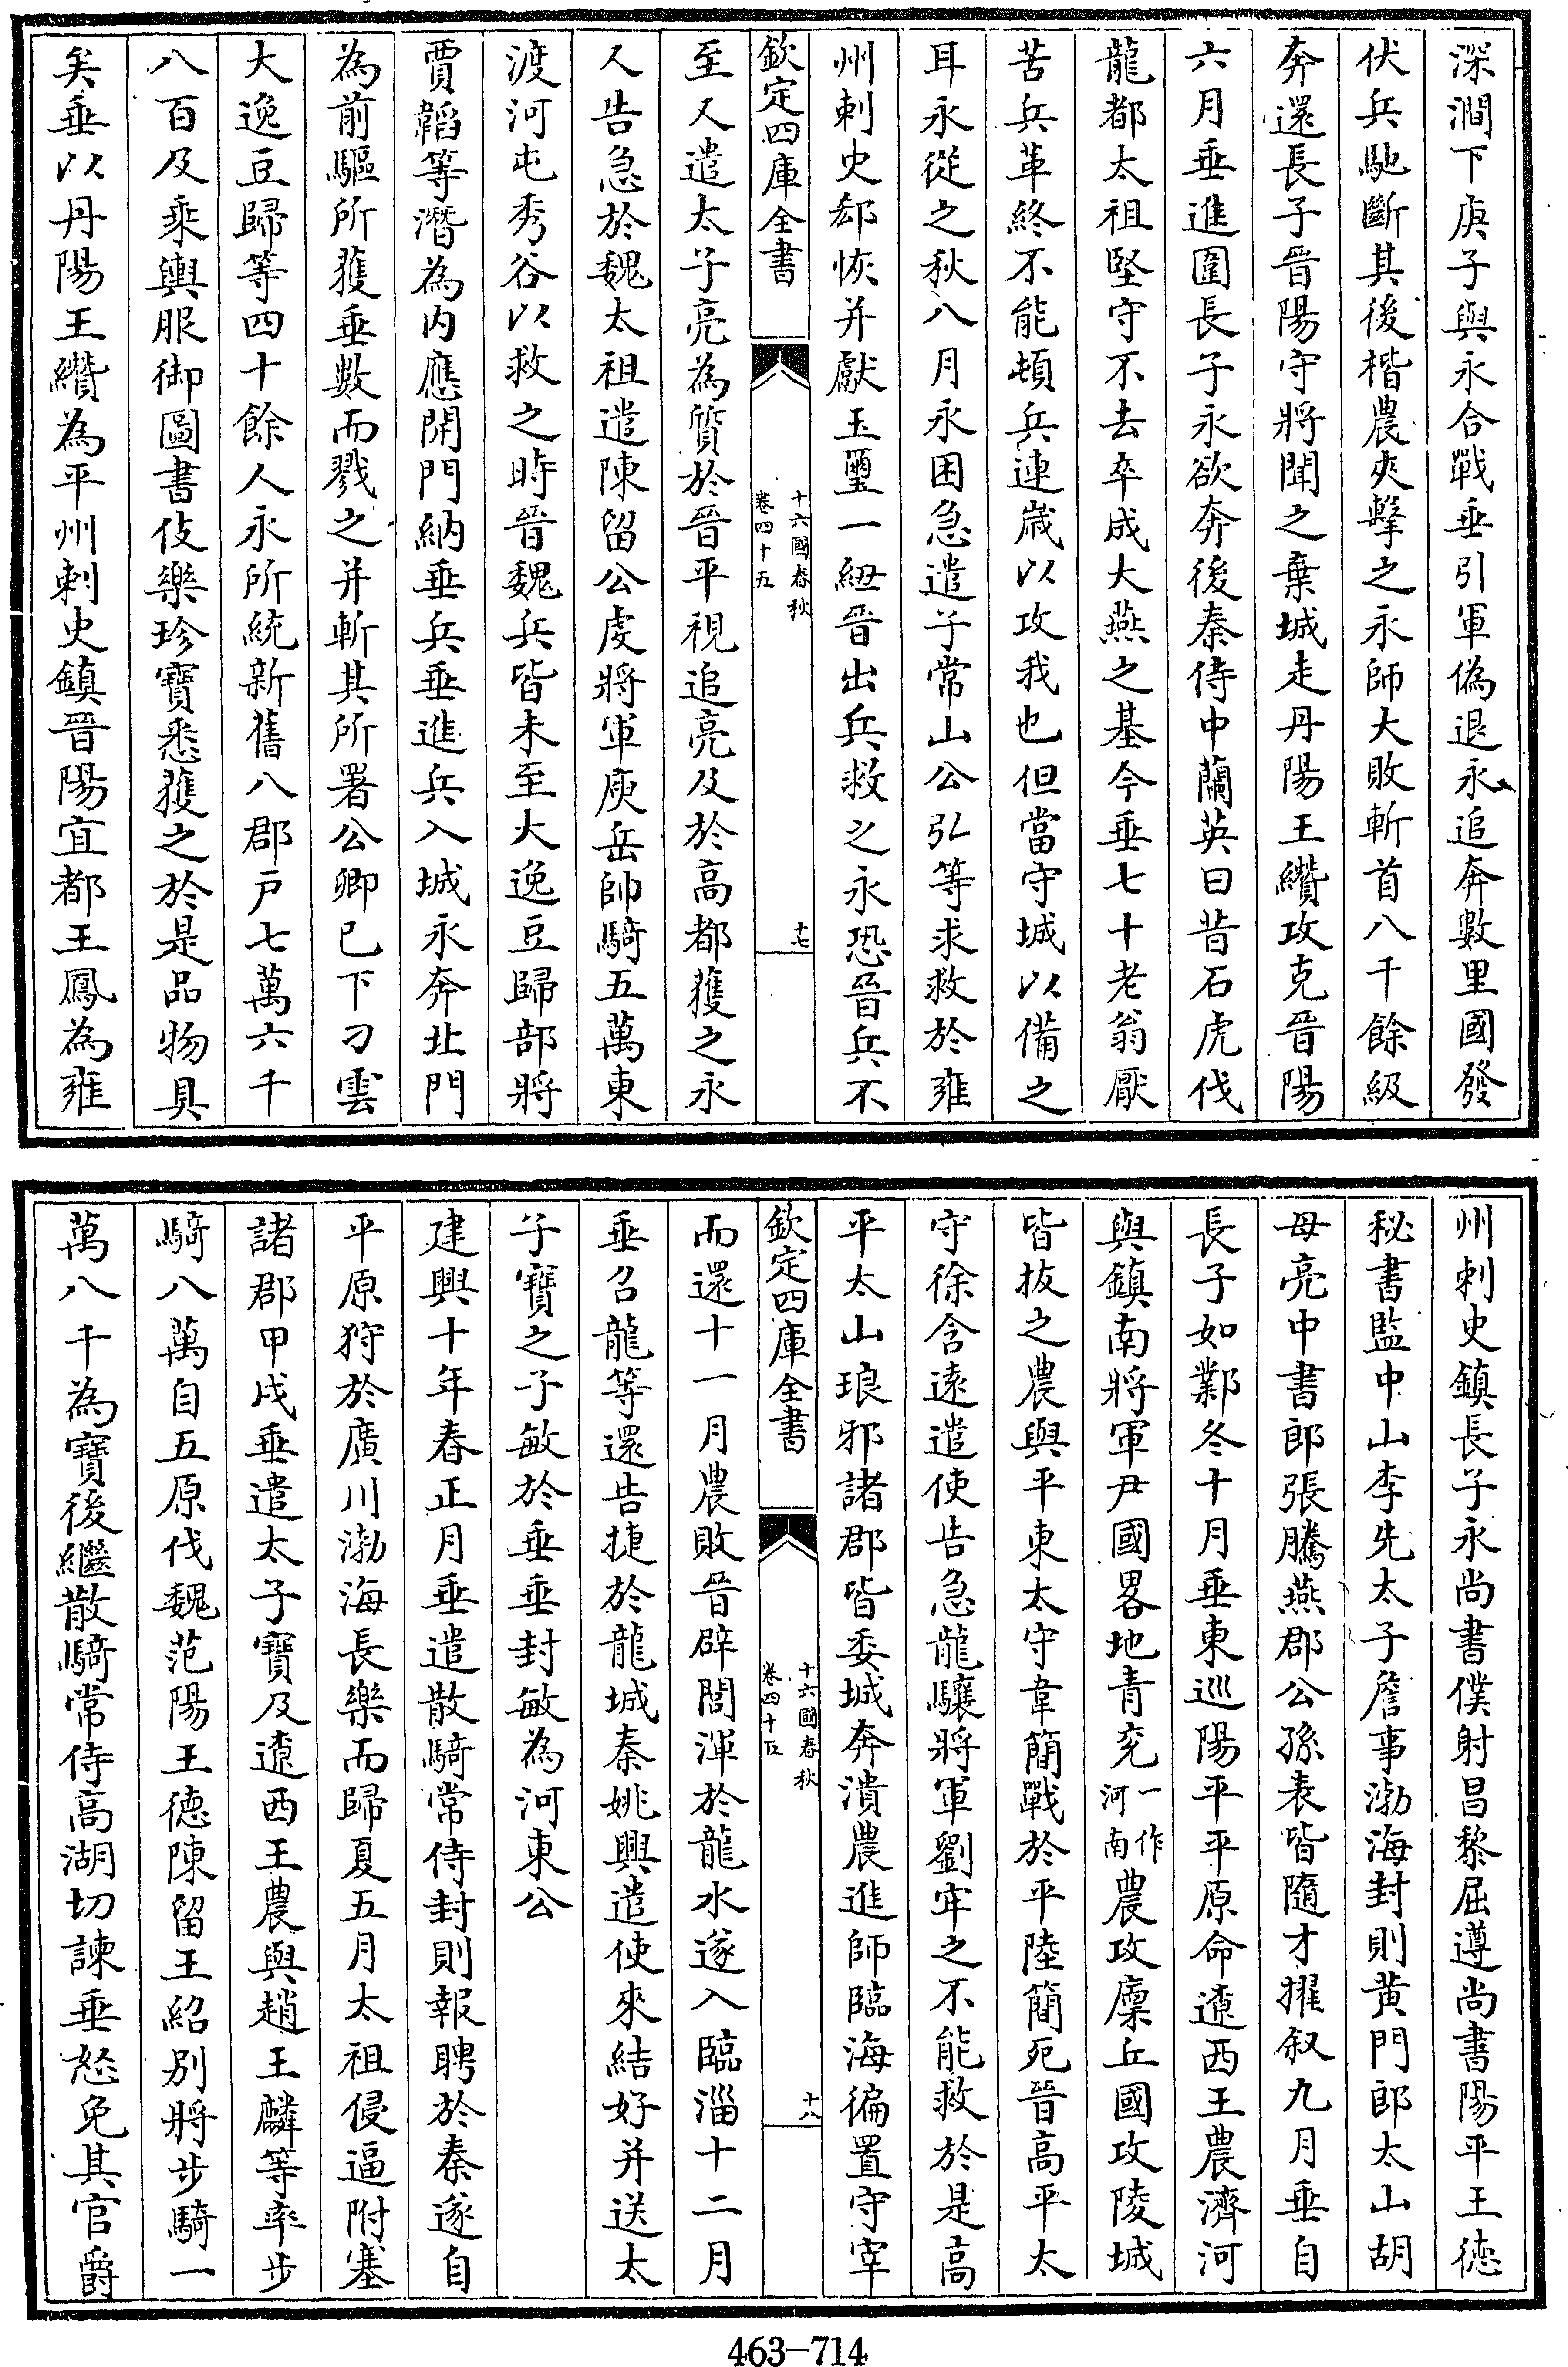 深澗下庚子與永合戰垂引軍偽退永追奔數里國發
伏兵馳斷其後楷農夾擊之永師大敗斬首八千餘級
奔還長子晉陽守將聞之棄城走丹陽王纘攻克晉陽
六月垂進圍長子永欲奔後秦侍中蘭英曰昔石虎伐
龍都太祖堅守不去卒成大燕之基今垂七十老翁厭
苦兵革終不能頓兵連歲以攻我也但當守城以備之
耳永從之秋八月永困急遣子常山公弘等求救於雍
州刺史郄恢并獻玉璽一紐晉出兵救之永恐晉兵不
欽定四庫全書
十六國春秋
卷四十五
十七
至又遣太子亮為質於晉平視追亮及於高都獲之永
人告急於魏太祖遣陳留公虔將軍庾岳帥騎五萬東
渡河屯秀谷以救之時晉魏兵皆未至大逸豆歸部將
賈韜等潛為內應開門納垂兵垂進兵入城永奔北門
為前驅所獲垂數而戮之并斬其所署公卿已下刁雲
大逸豆歸等四十餘人永所統新舊八郡户七萬六千
八百及乘輿服御圖書伎樂珍寶悉獲之於是品物具
矣垂以丹陽王纘為平州刺史鎮晉陽宜都王鳳為雍
州刺史鎮長子永尚書僕射昌黎屈遵尚書陽平王德
秘書監中山李先太子詹事渤海封則黄門郎太山胡
母亮中書郎張騰燕郡公孫表皆隨才擢叙九月垂自
長子如鄴冬十月垂東巡陽平平原命遼西王農濟河
與鎮南將軍尹國畧地青兖一作河南農攻廩丘國攻陵城
皆拔之農與平東太守韋簡戰於平陸簡死晉高平太
守徐含遠遣使告急龍驤將軍劉牢之不能救於是高
平太山琅邪諸郡皆委城奔潰農進師臨海徧置守宰
欽定四庫全書
十六國春秋
卷四十五
十八
而還十一月農敗晉辟閭渾於龍水遂入臨淄十二月
垂召龍等還告捷於龍城秦姚興遣使來結好并送太
子寶之子敏於垂垂封敏為河東公
建興十年春正月垂遣散騎常侍封則報聘於秦遂自
平原狩於廣川渤海長樂而歸夏五月太祖侵逼附塞
諸郡甲戌垂遣太子寶及遼西王農與趙王麟等率步
騎八萬自五原伐魏范陽王德陳留王紹别將步騎一
萬八千為寶後繼散騎常侍高湖切諫垂怒免其官爵
463-714